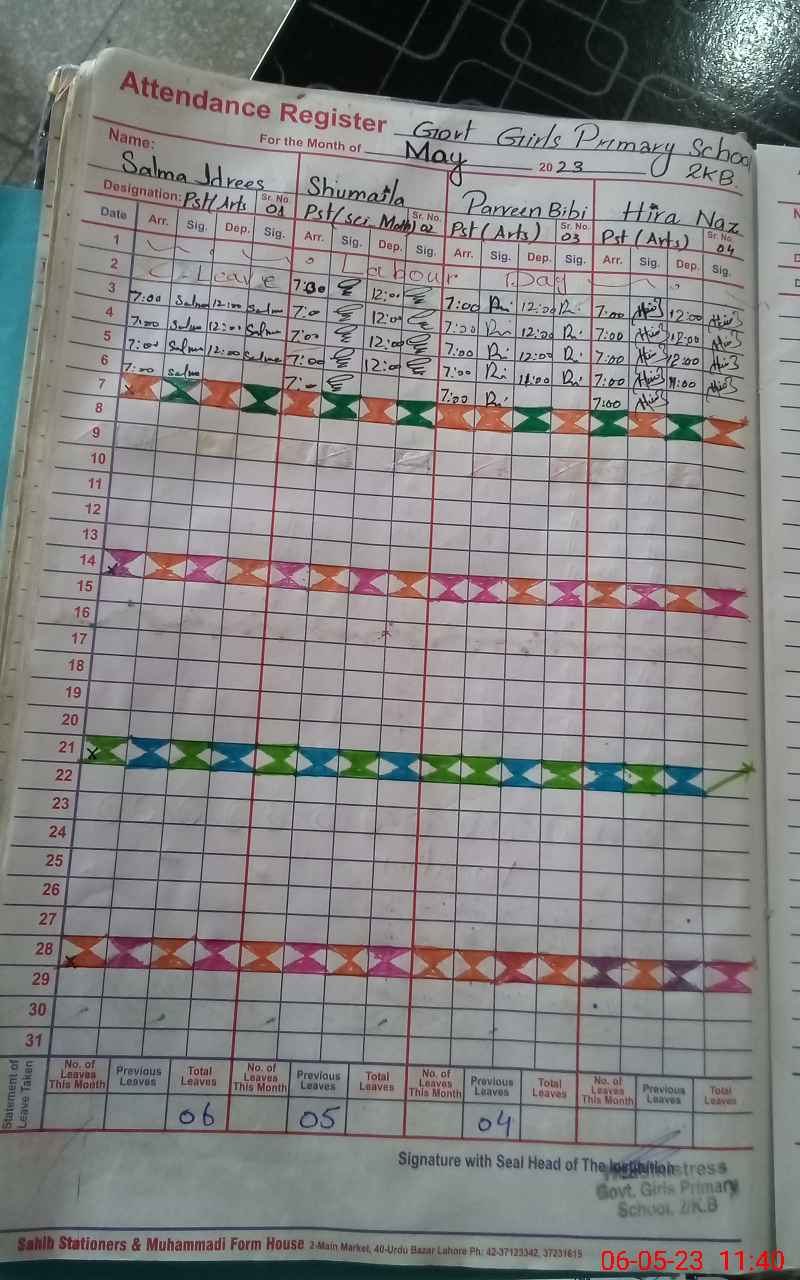 Attendance Register Govt Girls Primary School
For the Month of May 2023 2KB.
Name: Salma Idrees Shumaila Parveen Bibi Hira Naz
Designation: Pst/Arts Sr. No. 01 Pst (Sci. Math) Sr. No. 02 Pst (Arts) Sr. No. 03 Pst (Arts) Sr. No. 04
Date Arr. Sig. Dep. Sig. Arr. Sig. Dep. Sig. Arr. Sig. Dep. Sig. Arr. Sig. Dep. Sig.
1 Leave Labour Day
2
3 7:00 Salma 12:00 Salma 7:00 12:00 7:00 12:00 7:00 12:00
4 7:00 Salma 12:00 Salma 7:0 12:00 7:00 12:00 7:00 12:00
5 7:00 Salma 12:00 Salma 7:00 12:00 7:00 12:00 7:00 12:00
6 7:00 Salma 7:00 12:00 7:00 11:00 7:00 11:00
7 7:00 7:00
8
9
10
11
12
13
14
15
16
17
18
19
20
21
22
23
24
25
26
27
28
29
30
31
Statement of Leave Taken
No. of Leaves This Month Previous Leaves Total Leaves No. of Leaves This Month Previous Leaves Total Leaves No. of Leaves This Month Previous Leaves Total Leaves No. of Leaves This Month Previous Leaves Total Leaves
06 05 04
Signature with Seal Head of The Institution
Govt. Girls Primary
School, 2/K.B
Sahib Stationers & Muhammadi Form House 2-Main Market, 40-Urdu Bazar Lahore Ph: 42-37123342, 37231619
06-05-23 11:40